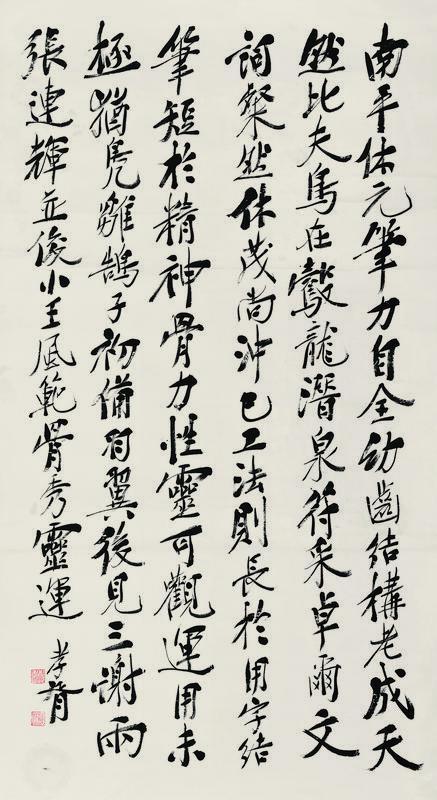 南平休元筆力自全幼齒結構老成天
然比夫鳥在鷇龍潛泉符采卓爾文
詞粲然休茂尚沖已工法則長於用字結
筆短於精神骨力性靈可觀運用未
極猶鳧雛鵠子初備羽翼後見三謝兩
張連輝並俊小王風範骨秀靈運
孝胥